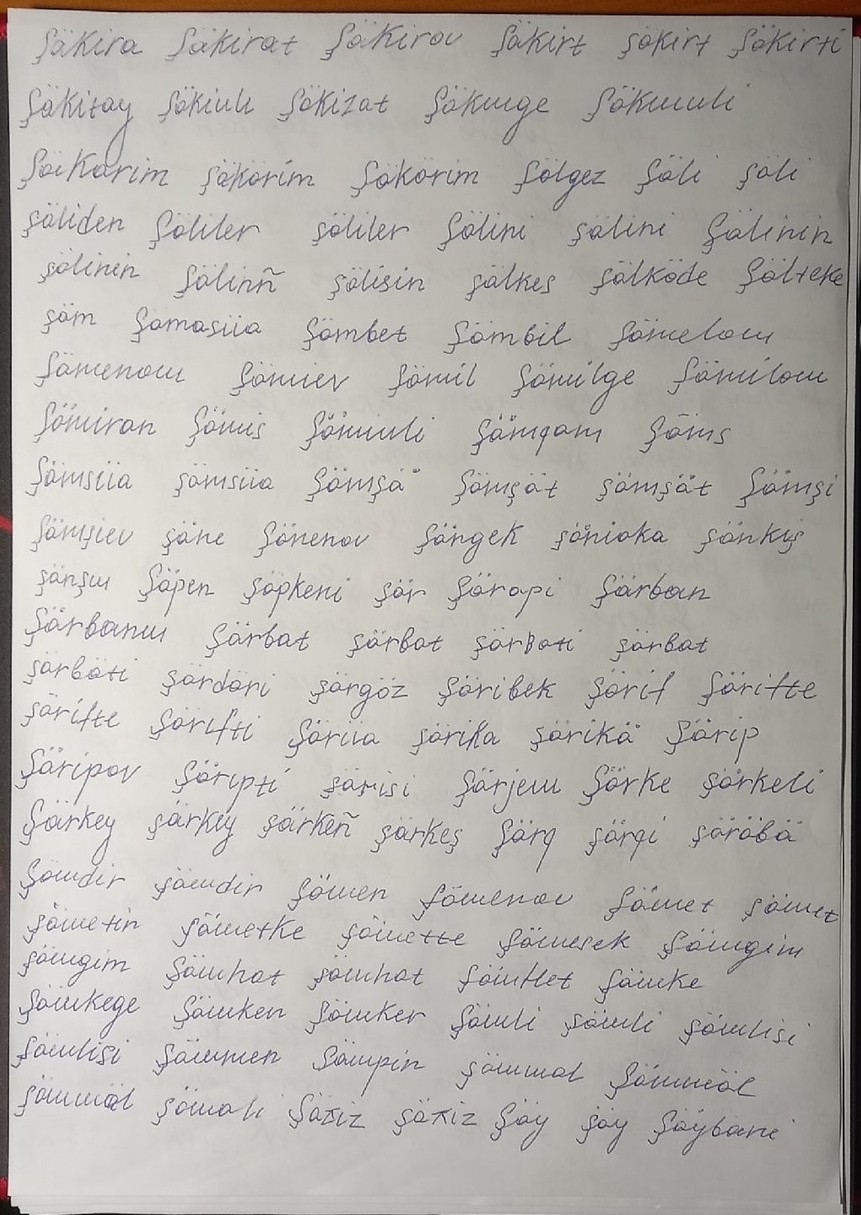 Şäkira Şäkirat Şäkirov Şäkirt şäkirt Şäkirti
Şäkitay Şäkiuli Şäkizat Şäkuuge Şäkuuuli
Şäkärim şäkärim Şäkärim Şälgez Şäli şäli
şäliden Şäliler şäliler Şälini şälini Şälinin
şälinin Şälinñ şälisin şälkes şälköde Şälteke
şäm Şamasiia Şämbet Şämbil Şämelow
Şämenow Şämiev Şämil Şämilge Şämilow
Şämiran Şämis Şämiuli Şämqam Şäms
Şämsiia şämsiia Şämşä Şämşät şämşät Şämşi
Şämşiev şäne Şänenov Şängek şänioka şänkiş
şänşu Şäpen şäpkeni şär Şärapi Şärban
Şärbanu Şärbat şärbat şärbati şärbät
şärbäti şärdäri şärgöz Şäribek Şärif Şärifte
şärifte Şärifti Şäriia şärika şärikä Şärip
Şäripov Şäripti şärisi Şärjeu Şärke şärkeli
Şärkey şärkey şärkeñ şärkeş Şärq şärqi şäräbä
Şäudir şäudir Şäuen Şäuenov Şäuet şäuet
şäuetin şäuetke şäuette Şäuesek Şäugim
şäugim Şäuhat şäuhat Şäuilet Şäuke
Şäukege Şäuken Şäuker Şäuli şäuli şäulisi
Şäulisi Şäumen Şäupin şäumal Şäumäl
şäumäl şäuali Şäziz şäziz Şäy şäy Şäybani